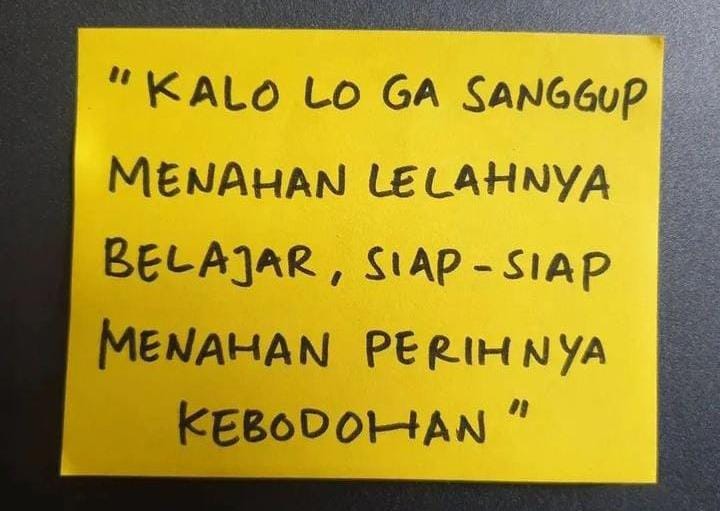 "KALO LO GA SANGGUP
MENAHAN LELAHNYA
BELAJAR, SIAP-SIAP
MENAHAN PERIHNYA
KEBODOHAN"